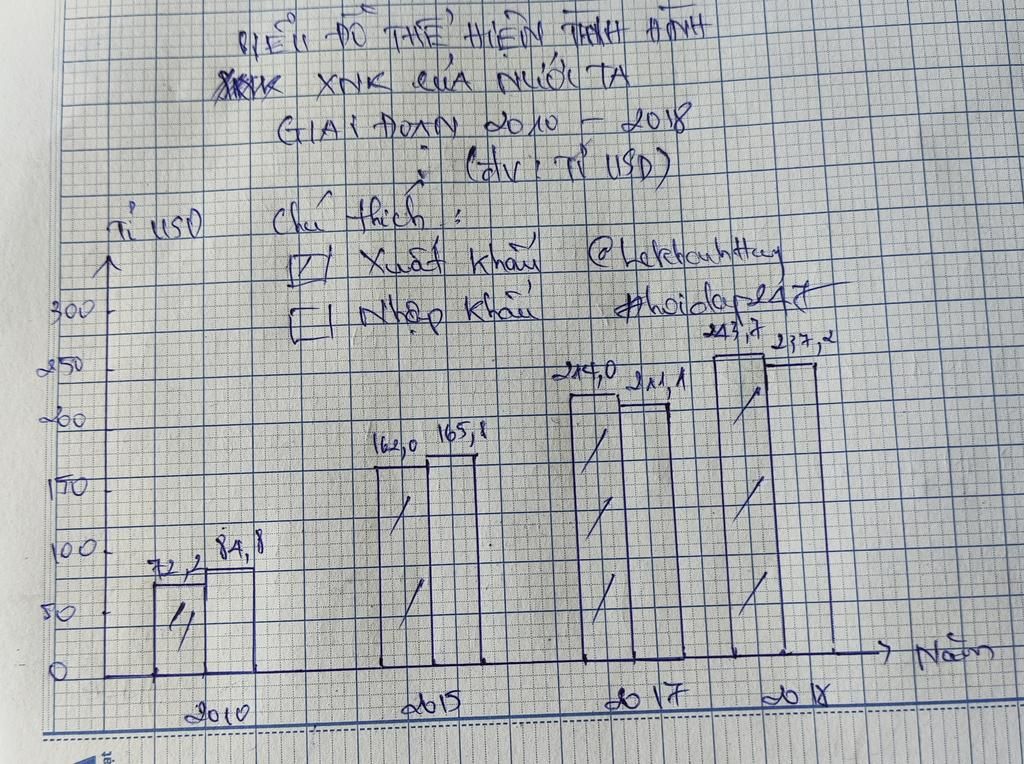 BIỂU ĐỒ THỂ HIỆN TÌNH HÌNH
XNK CỦA NƯỚC TA
GIAI ĐOẠN 2010 - 2018
(đv: TỈ USD)
Tỉ USD
Chú thích:
Xuất khẩu @LeKhanhHuy
Nhập khẩu #hoidap247
300
250
200
150
100
50
0
72,2
84,8
162,0
165,8
214,0
211,1
243,7
237,2
2010
2015
2017
2018
Năm